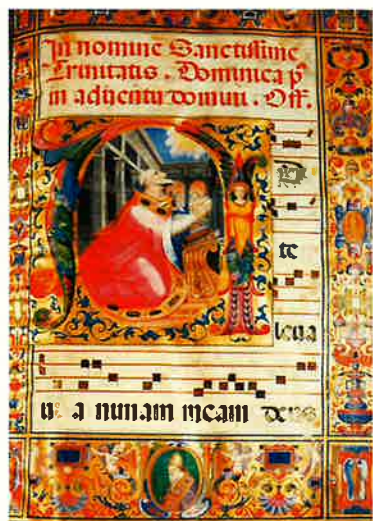 In nomine Sanctissime
Trinitatis . Dominica pª
in aduentu domini . Off.
te
leua
ui a nimam meam deus